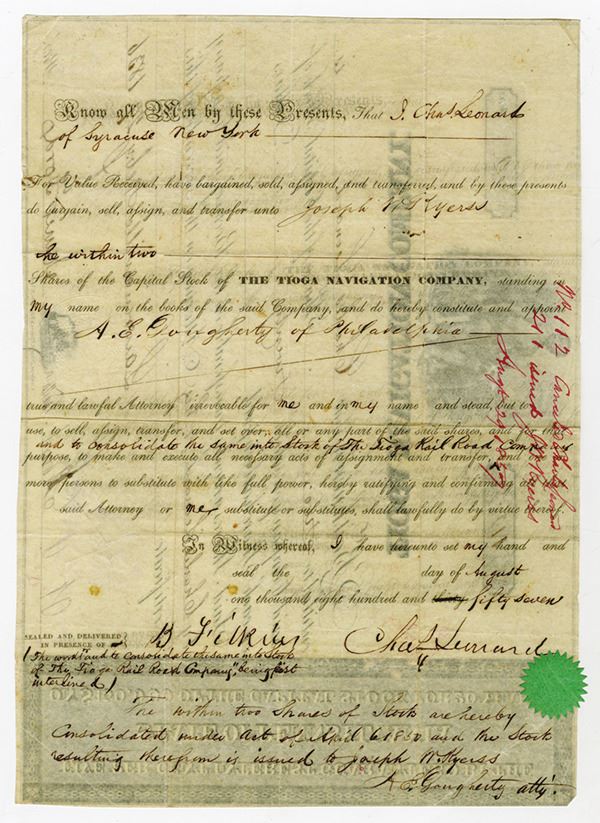 Know all Men by these Presents, That I, Chas. Leonard
of Syracuse New York
For Value Received, have bargained, sold, assigned, and transferred, and by these presents
do bargain, sell, assign, and transfer unto Joseph W. Kyerss
the within two
Shares of the Capital Stock of THE TIOGA NAVIGATION COMPANY, standing in
my name on the books of the said Company, and do hereby constitute and appoint
A. E. Dougherty of Philadelphia
true and lawful Attorney irrevocable for me and in my name and stead, but to
use, to sell, assign, transfer, and set over, all or any part of the said shares, and for that
and to consolidate the same into Stock of The Tioga Rail Road Company
purpose, to make and execute all necessary acts of assignment and transfer, and
more persons to substitute with like full power, hereby ratifying and confirming all that
said Attorney or my substitute or substitutes, shall lawfully do by virtue hereof
In Witness whereof, I have hereunto set my hand and
seal the day of August
one thousand eight hundred and thirty fifty seven
SEALED AND DELIVERED
IN PRESENCE OF
B Filkins
Chas Leonard
(The words "and to consolidate the same into Stock
of The Tioga Rail Road Company", being first
interlined)
The within two Shares of Stock are hereby
Consolidated under Act of April 6 1850 and the Stock
resulting therefrom is issued to Joseph W. Kyerss
A E Dougherty atty.
No 112
211 issued